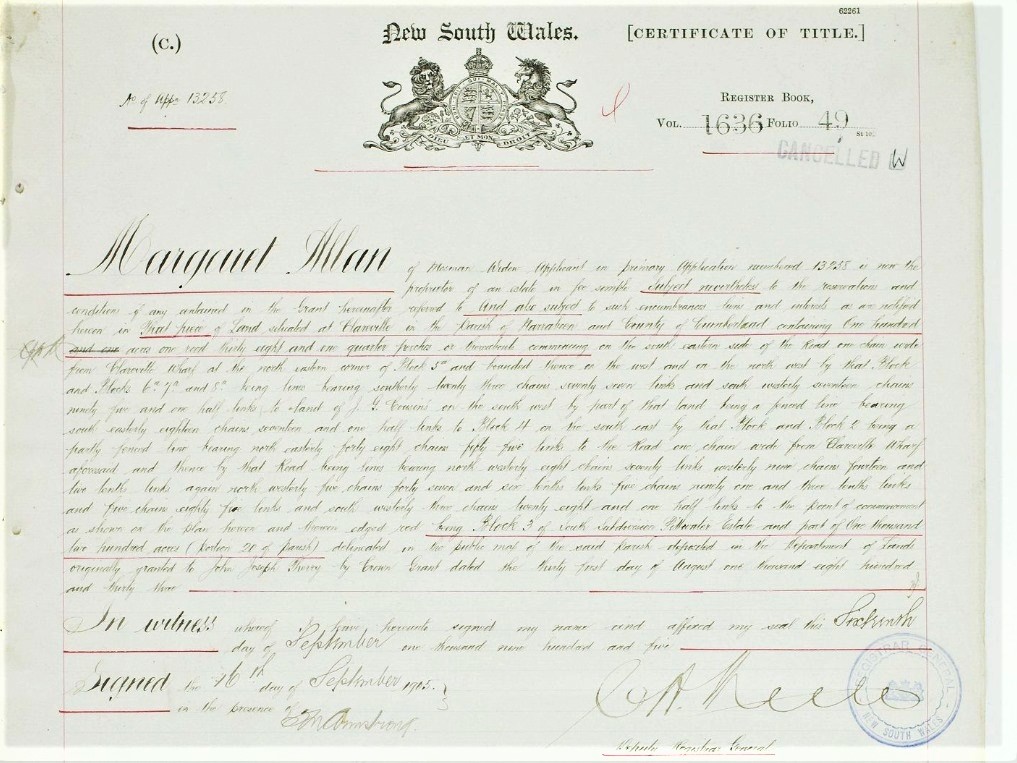 62261
(C.)
New South Wales.
[CERTIFICATE OF TITLE.]
No of Appn 13258
REGISTER BOOK,
VOL. 1636 FOLIO 49
CANCELLED W
DIEU ET MON DROIT
Margaret Allan of Mosman Widow Applicant in primary Application numbered 13258 is now the
proprietor of an estate in fee simple Subject nevertheless to the reservations and
conditions if any contained in the Grant hereinafter referred to And also subject to such encumbrances liens and interests as are notified
hereon in That piece of Land situated at Clareville in the Parish of Narrabeen and County of Cumberland containing One hundred
and one acres one rood thirty eight and one quarter perches or thereabouts commencing on the south eastern side of the Road one chain wide
from Clareville Wharf at the north eastern corner of Block 5 and bounded thence on the west and on the north west by that Block
and Blocks 6 7 and 8 being lines bearing southerly twenty three chains seventy seven links and south westerly seventeen chains
ninety five and one half links to Land of J. G. Cousins on the south west by part of that land being a fenced line bearing
south easterly eighteen chains seventeen and one half links to Block 4 on the south east by that Block and Block 2 being a
partly fenced line bearing north easterly forty eight chains fifty five links to the Road one chain wide from Clareville Wharf
aforesaid and thence by that Road being lines bearing north westerly eight chains seventy links westerly nine chains fourteen and
two tenths links again north westerly five chains forty seven and six tenths links five chains ninety one and three tenths links
and five chains eighty five links and south westerly three chains twenty eight and one half links to the point of commencement
as shown on the plan hereon and thereon edged red being Block 3 of South Subdivision Pittwater Estate and part of One thousand
two hundred acres (portion 20 of parish) delineated in the public map of the said Parish deposited in the Department of Lands
originally granted to John Joseph Therry by Crown Grant dated the thirty first day of August one thousand eight hundred
and thirty three
In witness whereof I have hereunto signed my name and affixed my seal this Sixteenth
day of September one thousand nine hundred and five
Signed the 16th day of September 1905.
in the presence of E M Armstrong.
Deputy Registrar General
REGISTRAR GENERAL
NEW SOUTH WALES